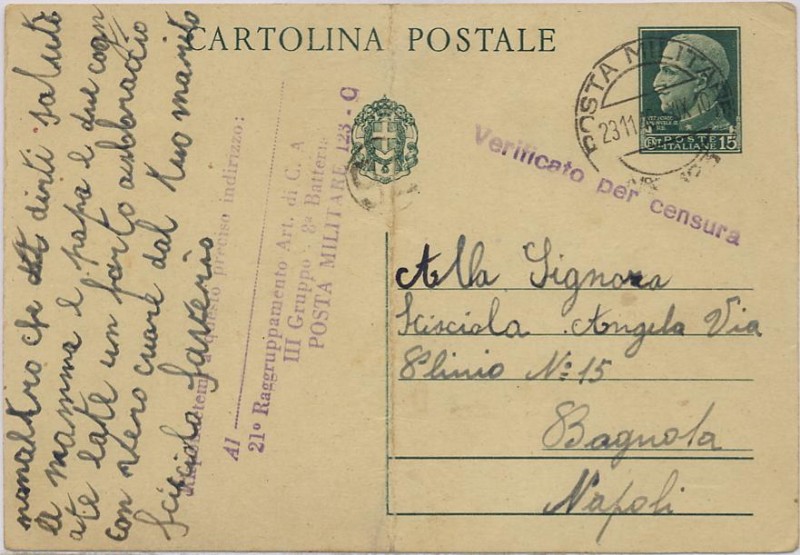 CARTOLINA POSTALE
nonaltro che dirti salute
le mamma e papa e due cogn
ate late un forto abbraccio
con vero cuore dal tuo marito
Scisciola Saverio
Rispondetemi a questo preciso indirizzo:
Al
21º Raggruppamento Art. di C. A
III Gruppo - 8ª Batteria
POSTA MILITARE 123 - C
POSTA MILITARE
23 11
POSTE ITALIANE 15
CENT
Verificato per censura
Alla Signora
Scisciola Angela Via
Plinio Nº 15
Bagnola
Napoli